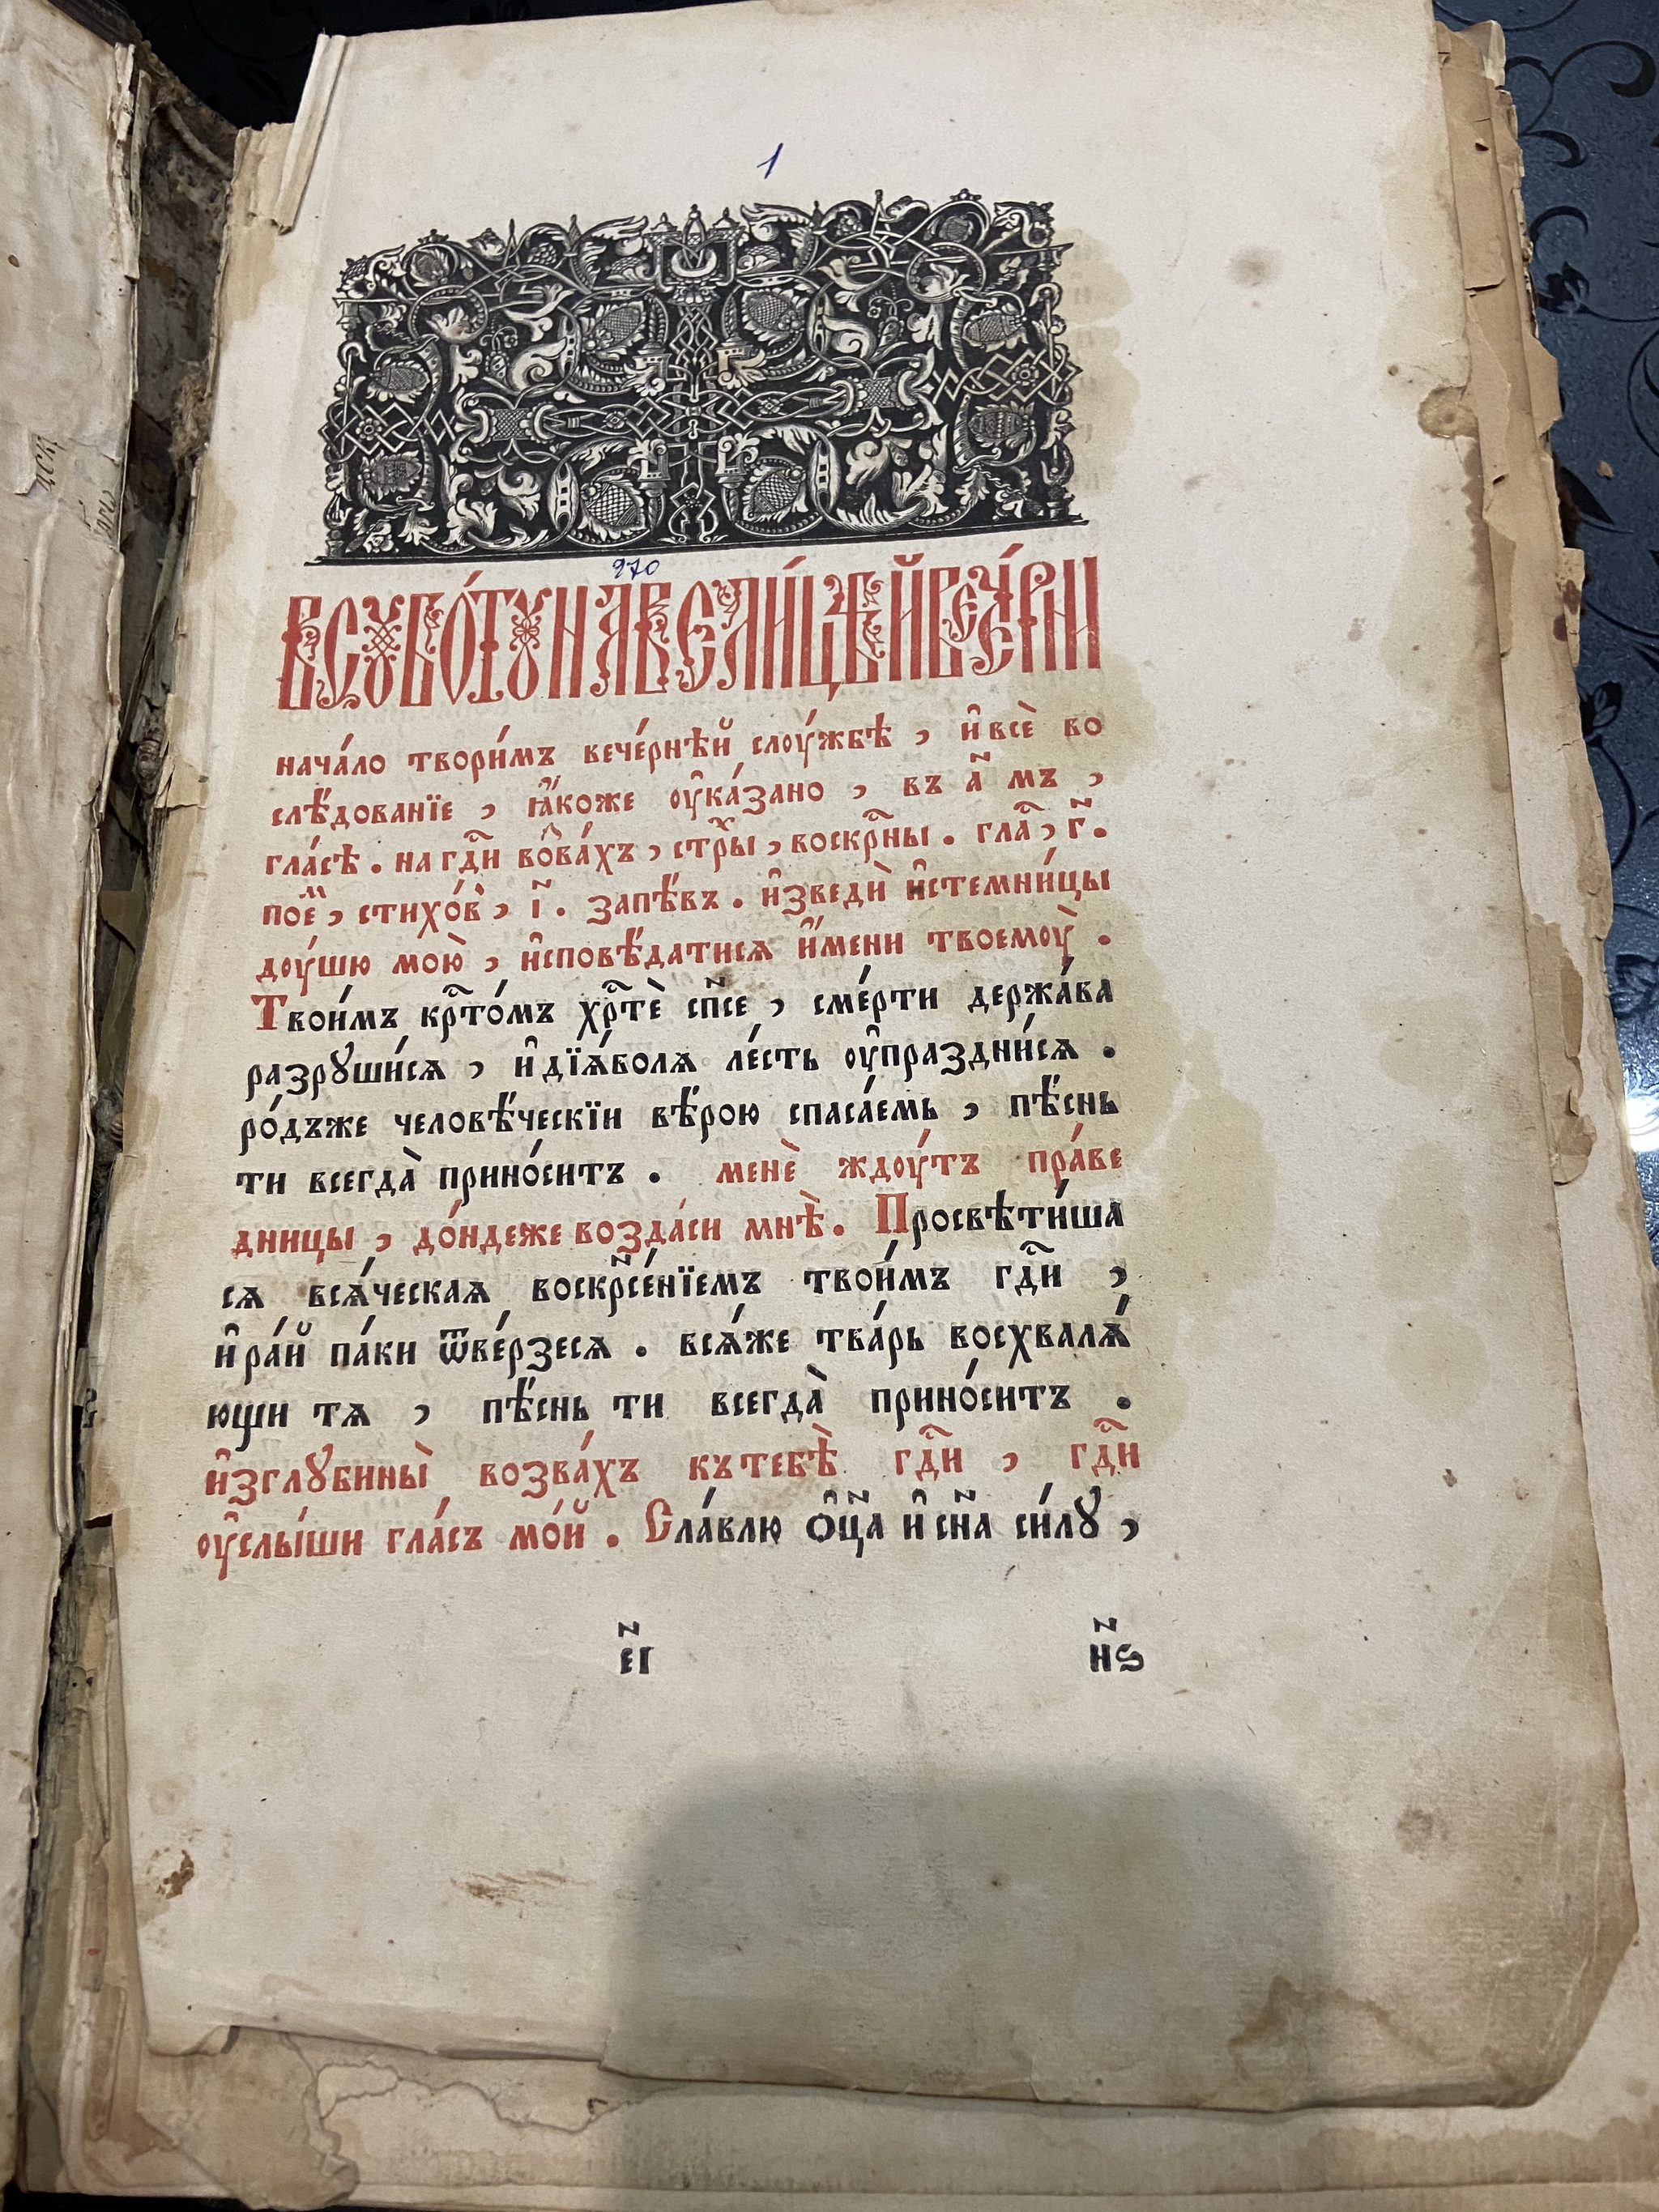 1
970
В СꙊБО́ТꙊ НА ВЕЛИ́ЦѢЙ ВЕЧЕ́РНИ
нача́ло твори́мъ вече́рнѣй слꙋ́жбѣ , и҆ всѐ во
слѣ́дованїе , ꙗ҆́коже ᲂу҆ка́зано , въ а҃ мъ ,
гла́сѣ . на гдⷭ҇и во̑ва́хъ , стрⷯы , воскрⷭ҇ны . глаⷭ҇ , г҃ .
пое̑ⷨ , стихо́въ , і҃ . запѣ́въ . и҆зведѝ и҆стемни́цы
дᲂу́шю мою̀ , и҆сповѣ́датисѧ и҆́мени твоемᲂу̀ .
Твои́мъ крⷭ҇то́мъ хрⷭ҇тѐ сп҃се , сме́рти держа́ва
разрꙋши́сѧ , и҆ дїѧ́волѧ ле́сть ᲂу҆праздни́сѧ .
ро́дъже человѣ́ческїи вѣ́рою спаса́емь , пѣ́снь
ти всегда̀ прино́ситъ . менѐ ждᲂу́тъ пра́ве
дницы , до́ндеже возда́си мнѣ̀ . Просвѣти́ша
сѧ всѧ́ческаѧ воскр҃се́нїемъ твои́мъ гдⷭ҇и ,
и҆ ра́й па́ки ѿве́рзесѧ . всѧ́же тва́рь восхвалѧ́
ющи тѧ , пѣ́снь ти всегда̀ прино́ситъ .
и҆зглꙋбины̀ возва́хъ кътебѣ̀ гдⷭ҇и , гдⷭ҇и
ᲂу҆слы́ши гла́съ мо́й . Сла́влю ѻ҆ц҃а и҆ сн҃а си́лꙋ ,
е҃і н҃ѕ